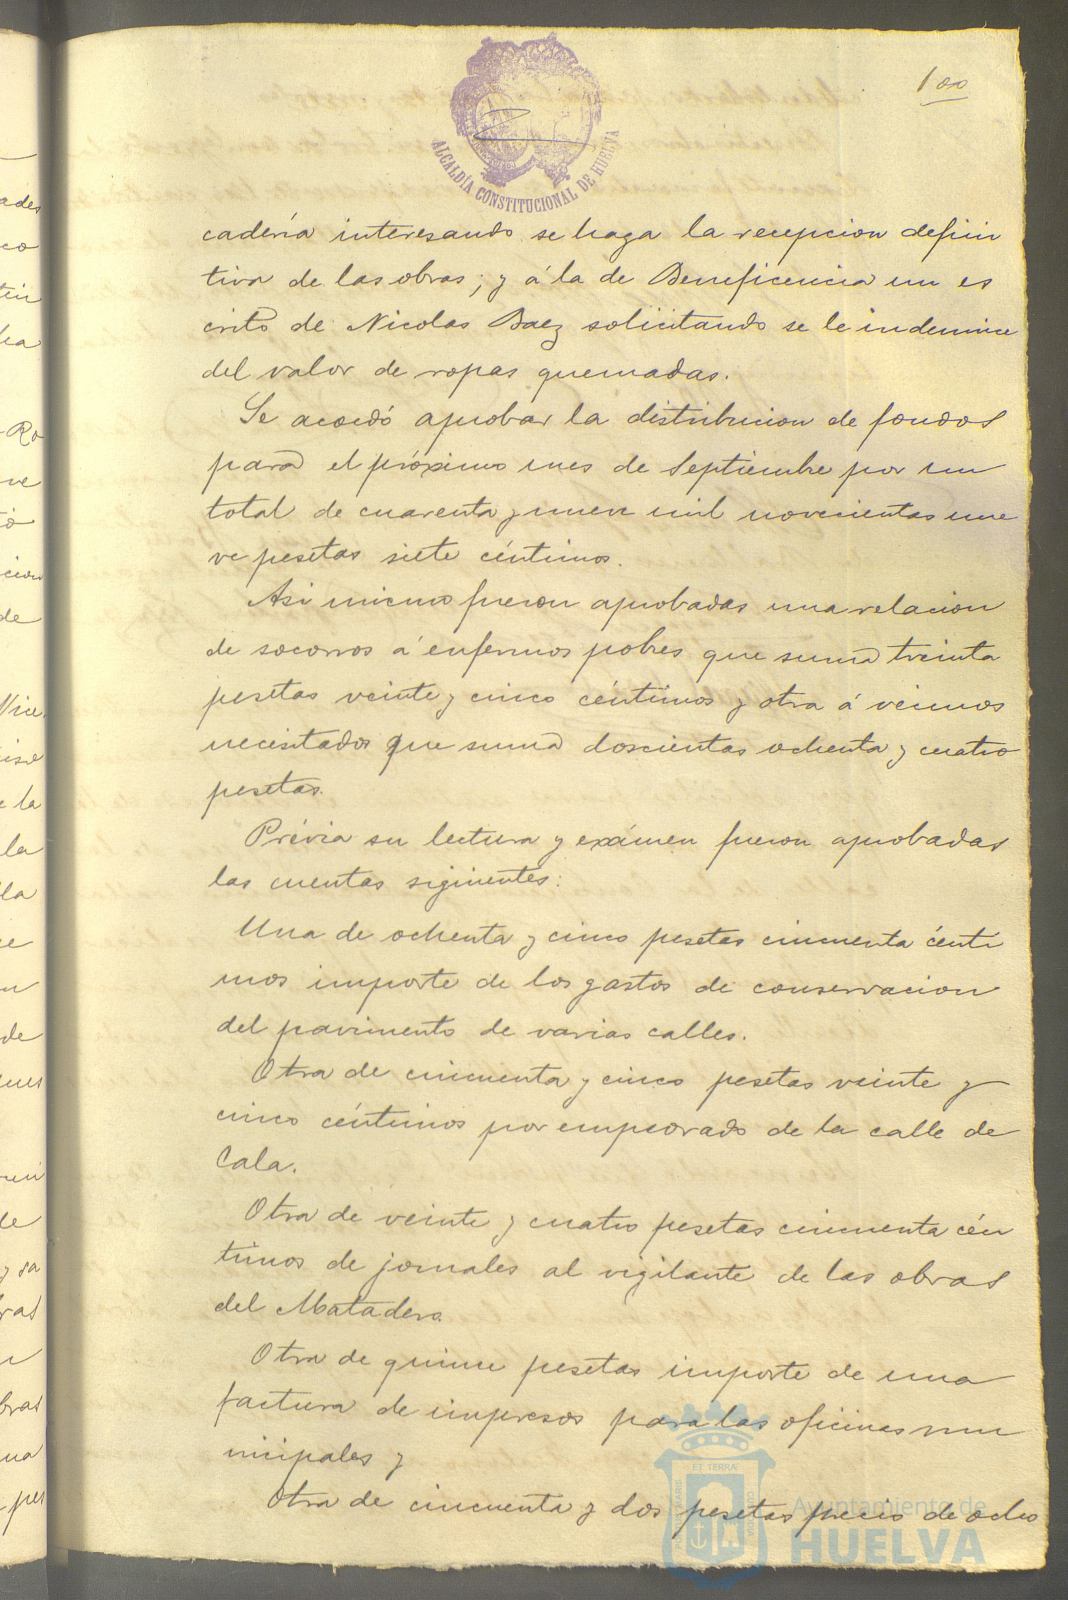 100
ALCALDÍA CONSTITUCIONAL DE HUELVA
cadería interesando se haga la recepcion defini
tiva de las obras; y á la de Beneficencia un es
crito de Nicolas Baez solicitando se le indemnice
del valor de ropas quemadas.
Se acordó aprobar la distribucion de fondos
para el próximo mes de Septiembre por un
total de cuarenta y nueve mil novecientas nue
ve pesetas siete céntimos.
Asi mismo fueron aprobadas una relacion
de socorros á enfermos pobres que suma treinta
pesetas veinte y cinco céntimos y otra á vecinos
necesitados que suma doscientas ochenta y cuatro
pesetas.
Prévia su lectura y exámen fueron aprobadas
las cuentas siguientes:
Una de ochenta y cinco pesetas cincuenta cénti
mos importe de los gastos de conservacion
del pavimento de varias calles.
Otra de cincuenta y cinco pesetas veinte y
cinco céntimos por empedrado de la calle de
Cala.
Otra de veinte y cuatro pesetas cincuenta cén
timos de jornales al vigilante de las obras
del Matadero.
Otra de quince pesetas importe de una
factura de impresos para las oficinas mu
nicipales y
Otra de cincuenta y dos pesetas precio de ocho
Ayuntamiento de
HUELVA
ET TERRÆ